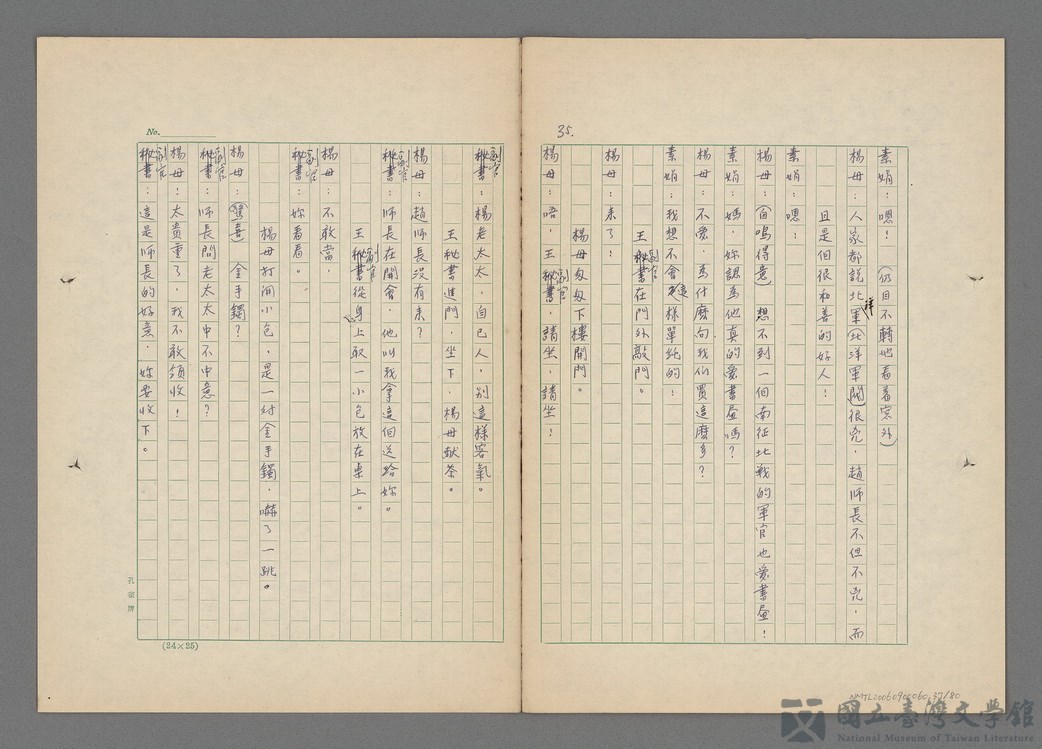 35.
素娟：嗯！（仍目不轉地看着窓外）
楊母：人家都說北洋軍（北洋軍閥）很兇，趙師長不但不兇，而
且是個很和善的好人！
素娟：嗯：
楊母：（自鳴得意）想不到一個南征北戰的軍官也愛書畫！
素娟：媽，妳認為他真的愛書畫嗎？
楊母：不愛，為什麼向我們買這麼多？
素娟：我想不會這樣單純的！
王副官在門外敲門。
楊母：来了！
楊母匆匆下樓開門。
楊母：唔，王副官，請坐，請坐！
副官：楊老太太，自己人，別這樣客氣。
王秘書進門，坐下，楊母献茶。
楊母：趙師長沒有来？
副官：師長在開會，他叫我拿這個送給妳。
王副官從身上取一小包放在桌上。
楊母：不敢當，
副官：妳看看。
楊母打開小包，是一对金手鐲，嚇了一跳。
楊母：（驚喜）金手鐲？
副官：師長問老太太中不中意？
楊母！太貴重了，我不敢領收！
副官：這是師長的好意，妳要收下。
No.
孔雀牌
(24×25)
NMTL20060900060.37/80
國立臺灣文學館
National Museum of Taiwan Literature